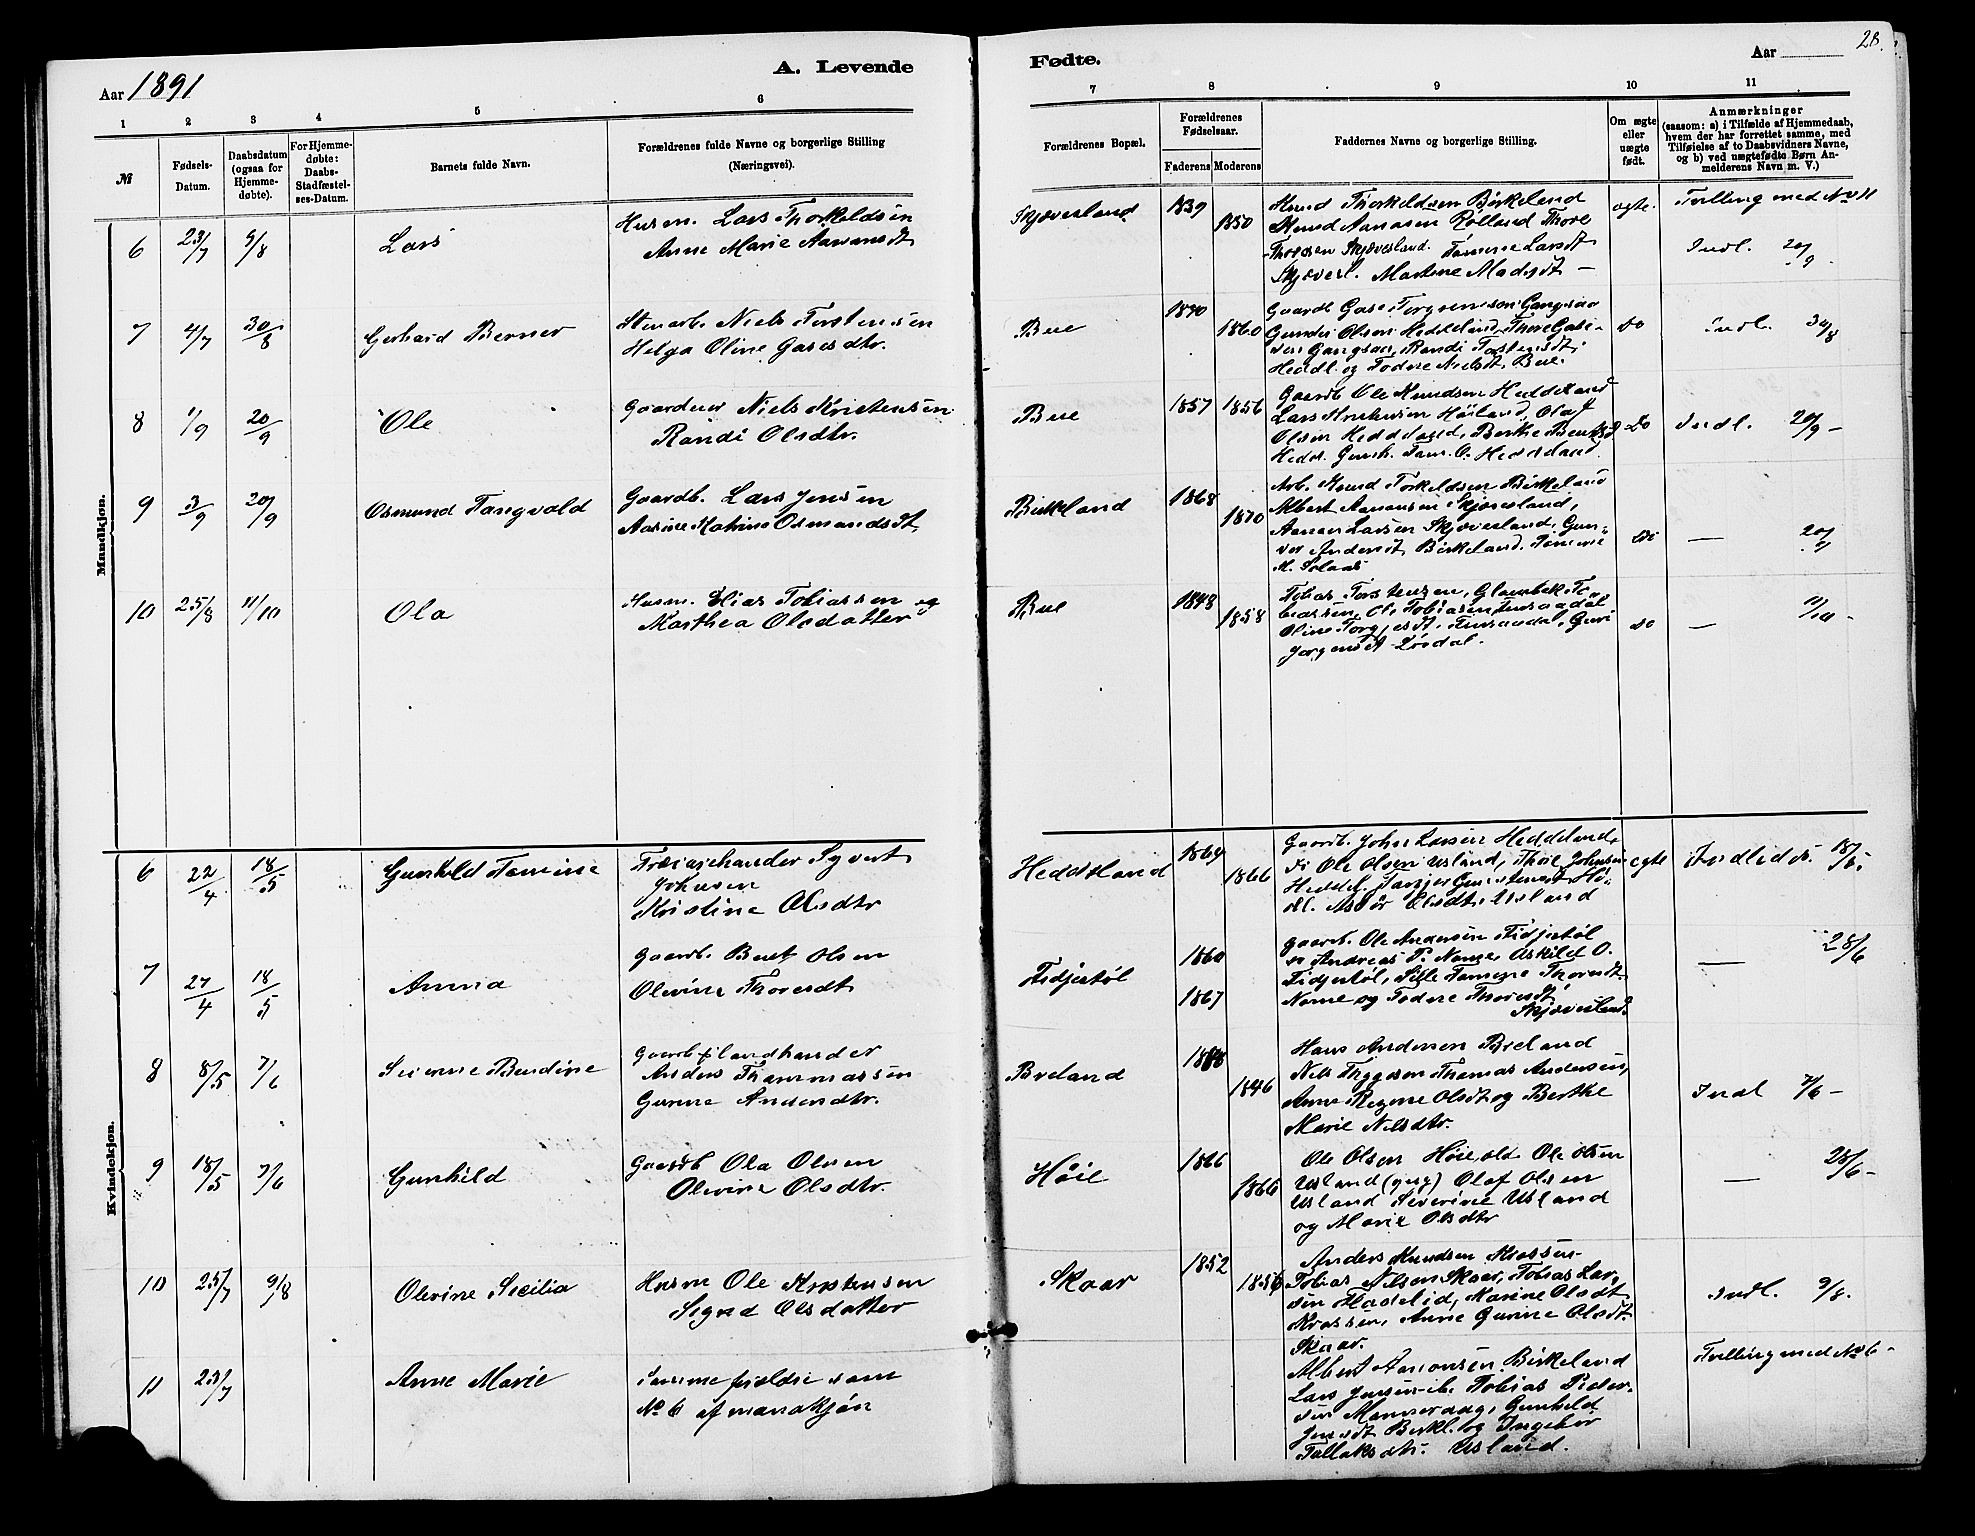 28.
A. Levende
Fødte.
Aar 1891
Aar
1 2 3 4 5 6 7 8 9 10 11
№
Fødsels-
Datum.
Daabsdatum
(ogsaa for
Hjemme-
døbte).
For Hjemme-
døbte:
Daabs-
Stadfæstel-
ses-Datum.
Barnets fulde Navn.
Forældrenes fulde Navne og borgerlige Stilling
(Næringsvei).
Forældrenes Bopæl.
Forældrenes
Fødselsaar.
Faderens Moderens
Faddernes Navne og borgerlige Stilling.
Om ægte
eller
uægte
født.
Anmærkninger
(saasom: a) i Tilfælde af Hjemmedaab,
hvem der har forrettet samme, med
Tilføielse af to Daabsvidners Navne,
og b) ved uægtefødte Børn An-
melderens Navn m. V.)
Mandkjøn.
6 23/7 9/8 Lars
Husm. Lars Thorkeldsen
Anne Marie Aanensdt
Skjævesland 1839 1850
Knud Thorkeldsen Birkeland
Knud Aanasen Røiland Thore
Thoresen Skjævesland. Tomine Larsdt
Skjævesl. Martine Madsdt –
ægte. Tvilling med No 11
Indl. 20/9.
7 4/7 30/8 Gerhard Berner
Stenarb. Niels Torstensen
Helga Oline Gasesdtr.
Bue 1840 1860
Gaardb. Gase Torgrensson Gangsaa
Gunder Olsen Heddeland, Thore Gase-
sen Gangsaa, Randi Torstensdt.
Heddl. og Todne Nielsdt. Bue.
Do Indl. 30/8
8 1/9 20/9 Ole
Gaardeier Niels Kristensen
Randi Olsdtr.
Bue 1857 1856
Gaardb Ole Knudsen Heddeland
Lars Høiland, Olaf
Olsen Heddeland, Berthe
Hedd. Gunh. Tom. O. Heddeland.
Do Indl. 20/9 –
9 3/9 20/9 Osmund Tangvald
Gaardb. Lars Jensen
Aasine Matine Osmundsdt
Birkeland 1868 1870
Arb. Knud Torkeldsen Birkeland
Albert Aanonsen Skjævesland,
Aanen Larsen Skjævesland, Gun-
vor Andersdt Birkeland. Tomine
M. Solaas
Do — 20/9
10 25/8 11/10 Ola
Husm. Elias Tobiassen og
Marthea Olsdatter
Bue 1848 1858
Tobias Torstensen, To-
biassen, O. Tobiasen Finsaadal
Oline Torgjesdt. Finsaadal, Guri
Jørgensdt Lindal.
Do — 11/10 –
Kvindekjøn.
6 22/4 18/5 Gunhild Tomine
Træsjehandler Syvert
Johnsen
Kristine Olsdtr
Heddeland 1864 1866
Gaardb. John Larsen Heddeland,
Do Ole Olsen Usland, Thore Johnsen
Heddel. Tarjer Gunstensdt Hö-
Asbör Olsdt. Usland
egte Indlidt. 18/5.
7 27/4 18/5 Anna
Gaardb. Bent Olsen
Olevine Thoresdt
Fidjestøl 1860 1867
gaardb. Ole Andersen Fidjestøl
Do Andreas P. Nome, Askild O.
Fidjestøl, Sille Tomine Thoresdt.
Nome og Todne Thoresdt
Skjævesland.
— 28/6
8 8/5 7/6 Severine Bendine
Gaardb. f. landhander
Anders Thommassen
Gunne Andersdtr.
Breland 1848 1846
Hans Andersen Breland
Nels Thygesen Thomas Andersen,
Anne Regine Olsdt og Berthe
Marie Nilsdtr.
Indl 7/6 –
9 18/5 7/6 Gunhild
Gaardb Ola Olsen
Olevine Olsdtr.
Høie 1866 1866
Ole Olsen Høie old Ole Olsen
Usland (yng) Olaf Olsen
Usland Severine Usland
og Marie Olsdtr
— 28/6 –
10 25/7 9/8 Olevine Sicilia
Husm Ole Torstensen
Signe Olsdatter
Skaar 1852 1856
Anders Knudsen Krossen-
Tobias Nilsen Skaar, Tobias Lar-
sen Hadelid, Karine Olsdt
Krossen, Anne Gurine Olsdt.
Skaar.
Indl. 9/8.
11 23/7 Anne Marie
Samme foreldre som
No 6 af mandkjøn
Albert Aanonsen Birkeland
Lars Jensen ib. Tobias Peder-
sen Manneraag, Gunhild
Jensdt Birkl. og Ingebor
Tallaksdtr. Usland.
Tvilling med No 6 –